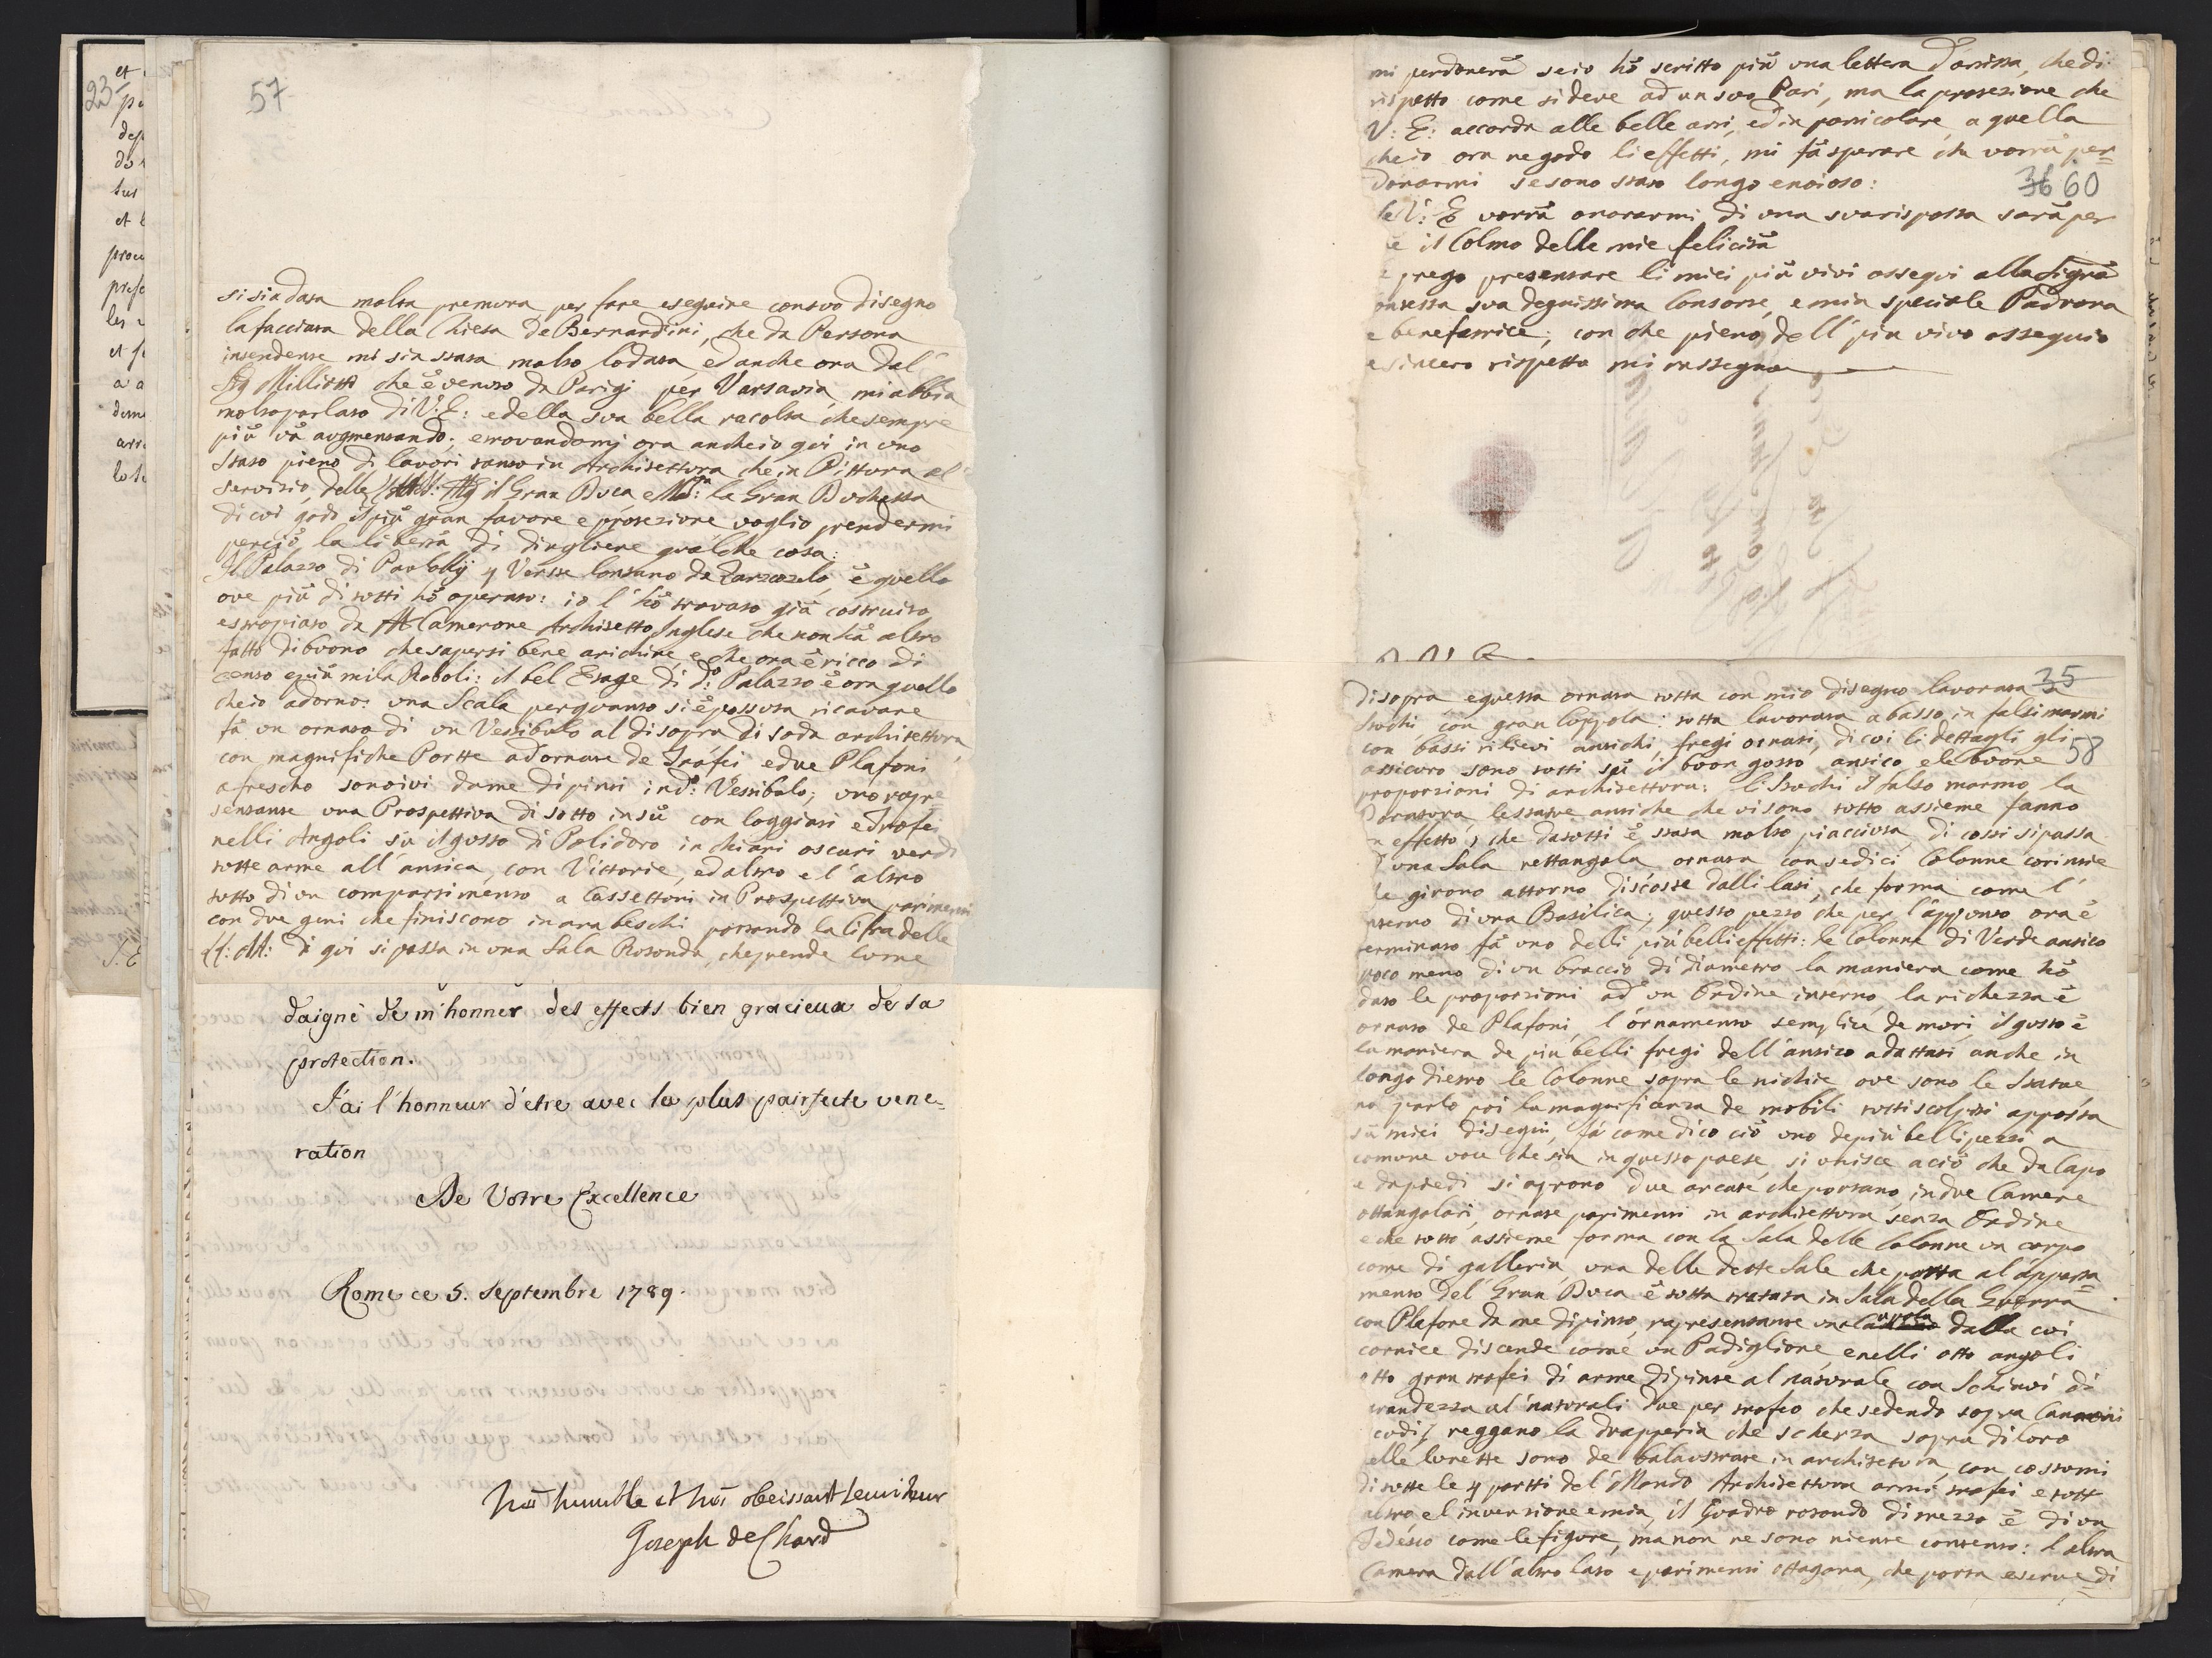 23
et
57
si sia data molta premura per fare eseguire con suo disegno
la facciata della Chiesa de Bernardini, che da Persona
intendente mi sia stata molto lodata, ed anche ora dal
Sig Milliotti che è venuto da Parigi per Varsavia, mi abbia
molto parlato di V: E: e della sua bella racolta che sempre
più và augmentando; e trovandomi ora anch io qui in uno
stato pieno di lavori tanto in Architettura che in Pittura al
servizio delle il Gran Duca e la Gran Duchessa
di cui godo il più gran favore e protezione voglio prendermi
perciò la libertà di dirgliene qualche cosa:
Il Palazzo di Paulosky 4 Verste lontano da Zarzozelo, è quello
ove più di tutti hò operato: io l'hò trovato già costruito
e stropiato da Camerone Architetto Inglese che non hà altro
fatto di buono che sapersi bene arichire, e che ora è ricco di
cento e più mila Roboli: il bel Etage di d:o Palazzo è ora quello
che io adorno: una Scala perquanto si è possuta ricavare
fà un ornato di un Vestibulo al disopra di soda architettura
con magnifiche Portte adornate de Trofei e due Plafoni
a frescho sono ivi da me dipinti in d:o Vestibolo; uno rapre=
sentante una Prospettiva di sotto in sù con loggiati e trofei
nelli Angoli sù il gusto di Polidoro in chiari oscuri verdi
tutte arme all'antica, con Vittorie, ed altro e l'altro
tutto di un compartimento a Cassettoni in Prospettiva parimenti
con due geni che finiscono in arabeschi portando la Cifra delle
di qui si passa in una Sala Rotonda, che prende lume
daigné de m'honner des effects bien gracieux de sa
protection.
J'ai l'honneur d'etre avec la plus pairfecte vene=
ration
De Votre Excellence
Rome ce 5. Septembre 1789.
humble et obeissant
Joseph de Chard
mi perdonerà se io hò scritto più una lettera d'artista, che di
rispetto come si deve ad un suo Pari, ma la protezione che
V: E: accorda alle belle arti, ed in particolare a quella
che io ora ne godo li effetti, mi fà sperare che vorrà per=
donarmi se sono stato longo e noioso:
36 60
se V: E vorrà onorarmi di una sua risposta sarà per
il Colmo delle mie felicità
prego presentare li miei più vivi ossequi alla Sig.ra
ontessa sua degnissima Consorte, e mia speciale Padrona
e benefatrice; con che pieno dell' più vivo ossequio
e sincero rispetto mi rassegno
35
disopra e questa ornata tutta con mio disegno lavorata
Stuchi, con gran Cuppola: tutta lavorata a basso in falsi marmi
con bassi rilievi antichi, fregi ornati, di cui li dettagli gli
58
assicuro sono tutti sù il buon gusto antico e le buone
proporzioni di architettura: li Stuchi il falso marmo, la
Doratura le statue antiche che vi sono tutto assieme fanno
n effetto, che da tutti è stata molto piacciuta, di cossi si passa
una Sala rettangola ornata con sedici Colonne corintie
e girono attorno discoste dalli lati, che forma come l'
nterno di una Basilica; questo pezzo che per l'appunto ora è
terminato fà uno delli più belli effetti: le Colonne di Verde antico
poco meno di un braccio di diametro la maniera come hò
dato le proporzioni ad un Ordine interno, la richezza è
ornato de Plafoni, l'ornamento semplice de muri, il gusto è
la maniera de più belli fregi dell'antico adattati anche in
longo dietro le Colonne sopra le nichie ove sono le Statue
no parlo poi la magnificanza de mobili tutti scolpiti apposta
sù miei disegni, fà come dico ciò uno de più belli pezzi a
comune voce che sia in questo paese, si unisce a ciò che da Capo
e da piedi si aprono due arcate che portano in due Camere
ottangolari, ornate parimenti in architettura senza Ordine
e che tutto assieme forma con la Sala delle Colonne un corpo
come di galleria, una delle dette Sale che porta al apparta=
mento del Gran Duca è tutta trattata in Sala della Guerra
con Plafone da me dipinto, rapresentante una dalla cui
cornice discende come un Padiglione, e nelli otto angoli
otto gran trofei di arme dipinte al naturale con Schiavi di
grandezza al naturali due per trofeo che sedendo sopra Cannoni
cudi, reggano la drapperia che scherza sopra di loro
elle lunette sono de balaustrate in architetura, con costumi
di tutte le 4 partti del Mondo Architettura armi trofei e tutt
altro e l'invenzione e mia, il Quadro rotondo di mezzo è di un
Tedesco come le figure, ma non ne sono niente contento: l'altra
Camera dall'altro lato e parimenti ottagona, che porta e serve di